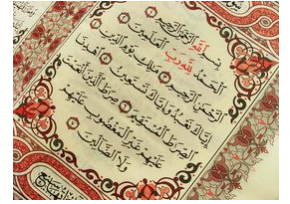 بسم الله الرحمن الرحيم
الحمد لله رب العالمين
الرحمن الرحيم ملك يوم الدين
إياك نعبد وإياك نستعين اهدنا
الصراط المستقيم صراط الذين أنعمت
عليهم غير المغضوب عليهم
ولا الضالين